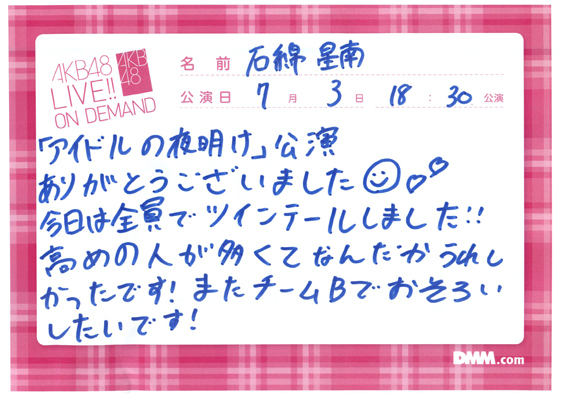 AKB48
LIVE!!
ON DEMAND
AKB
48
名前 石綿 星南
公演日 7月 3日 18:30 公演
「アイドルの夜明け」公演
ありがとうございました
今日は全員でツインテールしました!!
高めの人が多くてなんだかうれし
かったです! またチームBでおそろい
したいです!
DMM.com